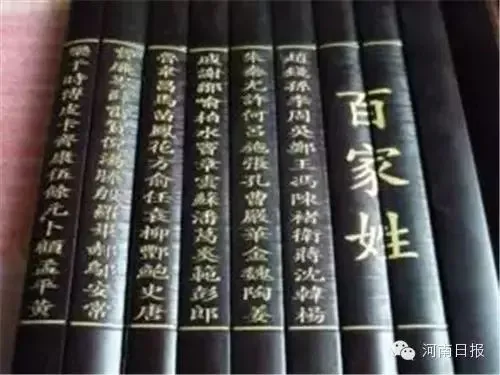 百家姓
趙錢孫李周吳鄭王馮陳褚衛蔣沈韓楊
朱秦尤許何呂施張孔曹嚴華金魏陶姜
戚謝鄒喻柏水竇章雲蘇潘葛奚範彭郎
魯韋昌馬苗鳳花方俞任袁柳酆鮑史唐
費廉岑薛雷賀倪湯滕殷羅畢郝鄔安常
樂于時傅皮卞齊康伍餘元卜顧孟平黃
河南日报